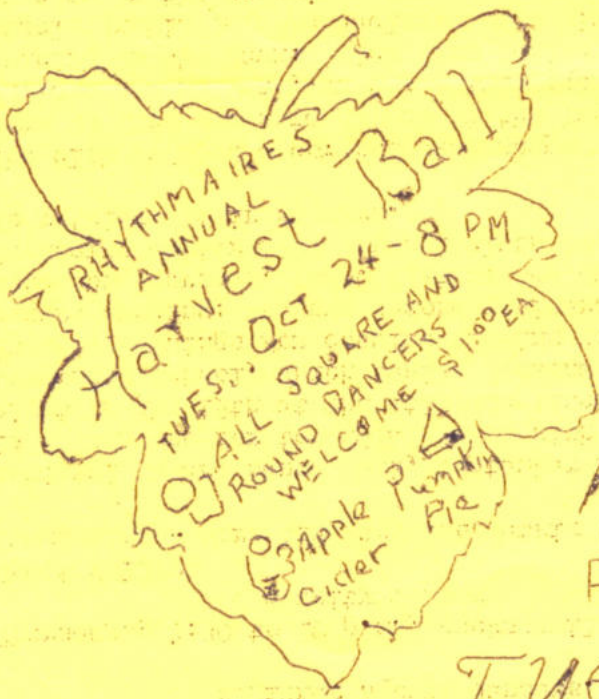 RHYTHMAIRES
ANNUAL
Harvest Ball
TUES. OCT 24 - 8 PM
ALL SQUARE AND
ROUND DANCERS
WELCOME $1.00 EA
Apple Pumpkin
Cider Pie